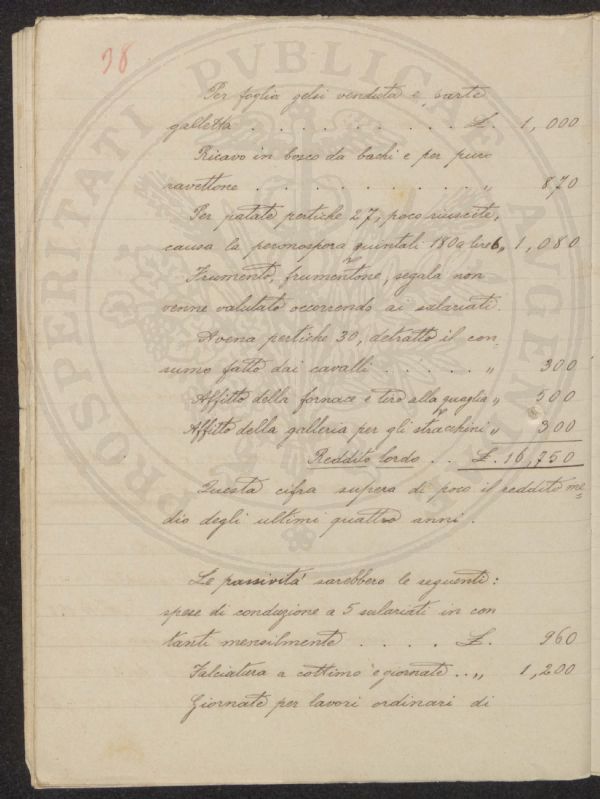 38
Per foglia gelsi venduta e parte
galletta . . . . . . . . . £. 1,000
Ricavo in bosco da bachi e per puro
ravettone . . . . . . . . . „ 870
Per patate pertiche 27, poco riuscite,
causa la peronospora quintali 180 a lire 6 „ 1,080
Frumento, frumentone, segala non
venne valutato occorrendo ai salariati.
Avena pertiche 30, detratto il con=
sumo fatto dai cavalli . . . . . . „ 300
Affitto della fornace e tiro alla quaglia „ 500
Affitto della galleria per gli stracchini „ 300
Reddito lordo . . £. 16,750
Questa cifra supera di poco il reddito me=
dio degli ultimi quattro anni.
Le passività sarebbero le seguenti:
spese di conduzione a 5 salariati in con
tanti mensilmente . . . . . £. 960
Falciatura a cottimo e giornate . . „ 1,200
Giornate per lavori ordinari di
PROSPERITATI PVBLICAE AVGENDAE